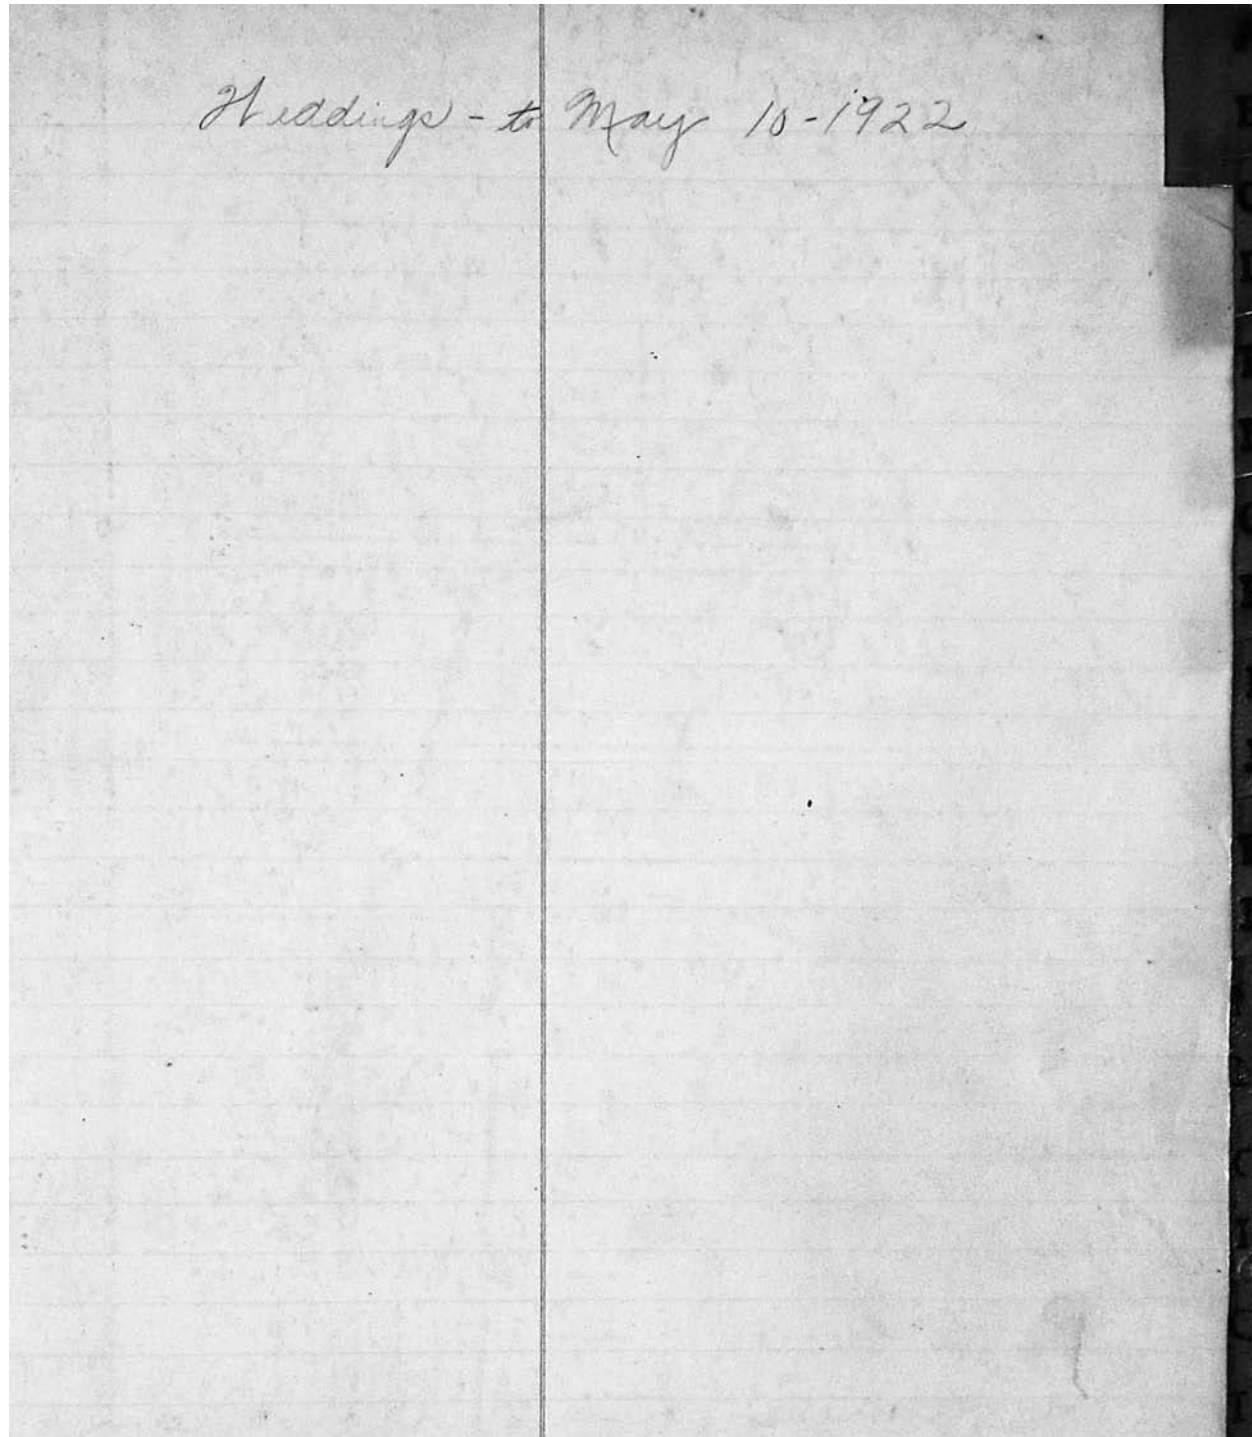 Weddings - to May 10 - 1922